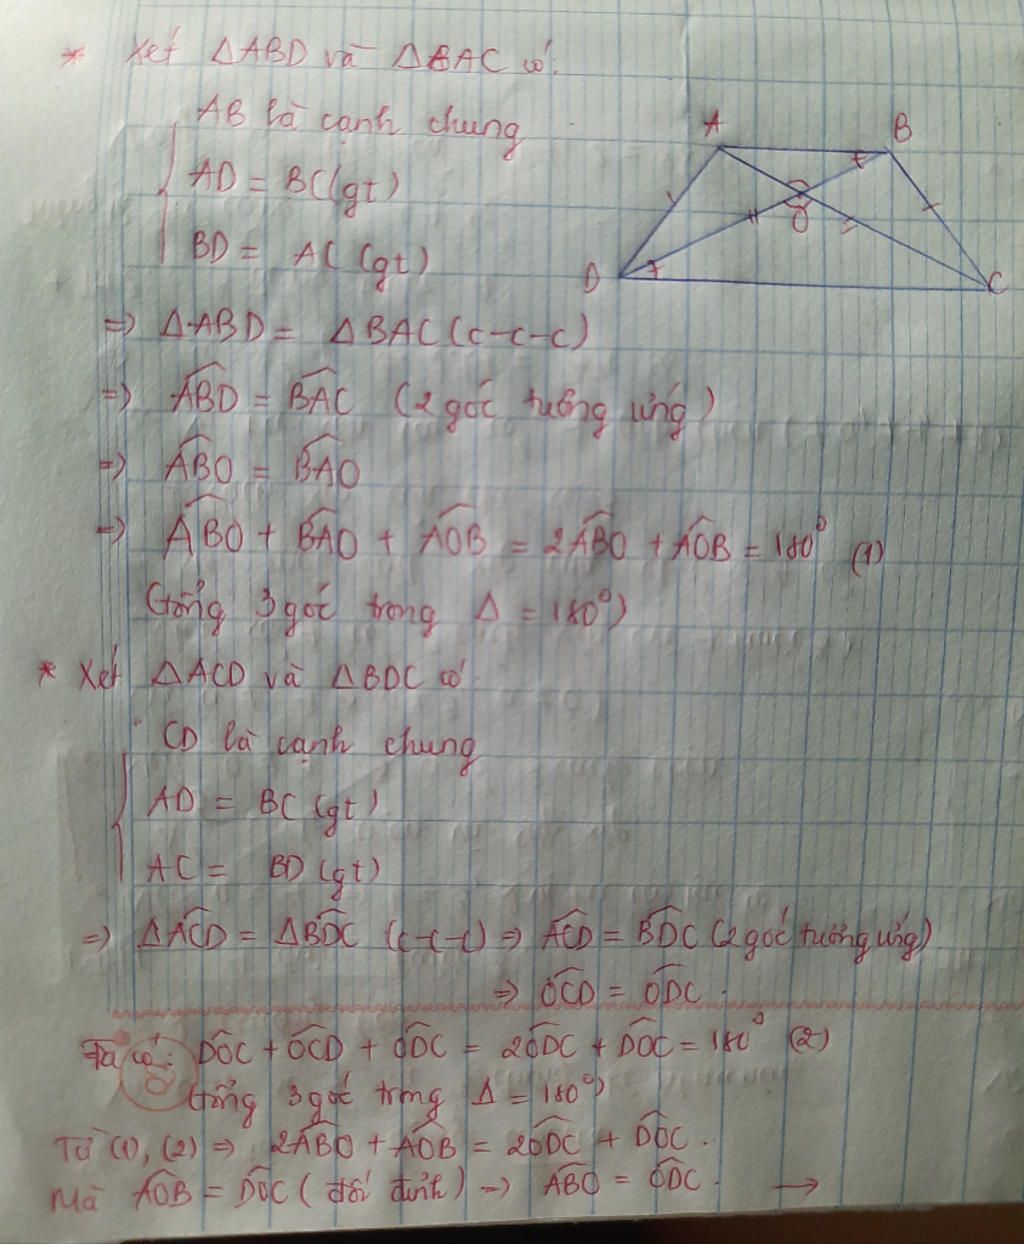 * Xét ΔABD và ΔBAC có:
AB là cạnh chung
AD = BC (gt)
BD = AC (gt)
A
B
O
D
C
=> ΔABD = ΔBAC (c-c-c)
=> \widehat{ABD} = \widehat{BAC} (2 góc tương ứng)
=> \widehat{ABO} = \widehat{BAO}
=> \widehat{ABO} + \widehat{BAO} + \widehat{AOB} = 2\widehat{ABO} + \widehat{AOB} = 180° (1)
(tổng 3 góc trong Δ = 180°)
* Xét ΔACD và ΔBDC có:
CD là cạnh chung
AD = BC (gt)
AC = BD (gt)
=> Δ\widehat{ACD} = Δ\widehat{BDC} (c-c-c) => \widehat{ACD} = \widehat{BDC} (2 góc tương ứng)
=> \widehat{OCD} = \widehat{ODC}.
Ta có: \widehat{DOC} + \widehat{OCD} + \widehat{ODC} = 2\widehat{ODC} + \widehat{DOC} = 180° (2)
(tổng 3 góc trong Δ = 180°)
Từ (1), (2) => 2\widehat{ABO} + \widehat{AOB} = 2\widehat{ODC} + \widehat{DOC}.
Mà \widehat{AOB} = \widehat{DOC} (đối đỉnh) => \widehat{ABO} = \widehat{ODC}. →